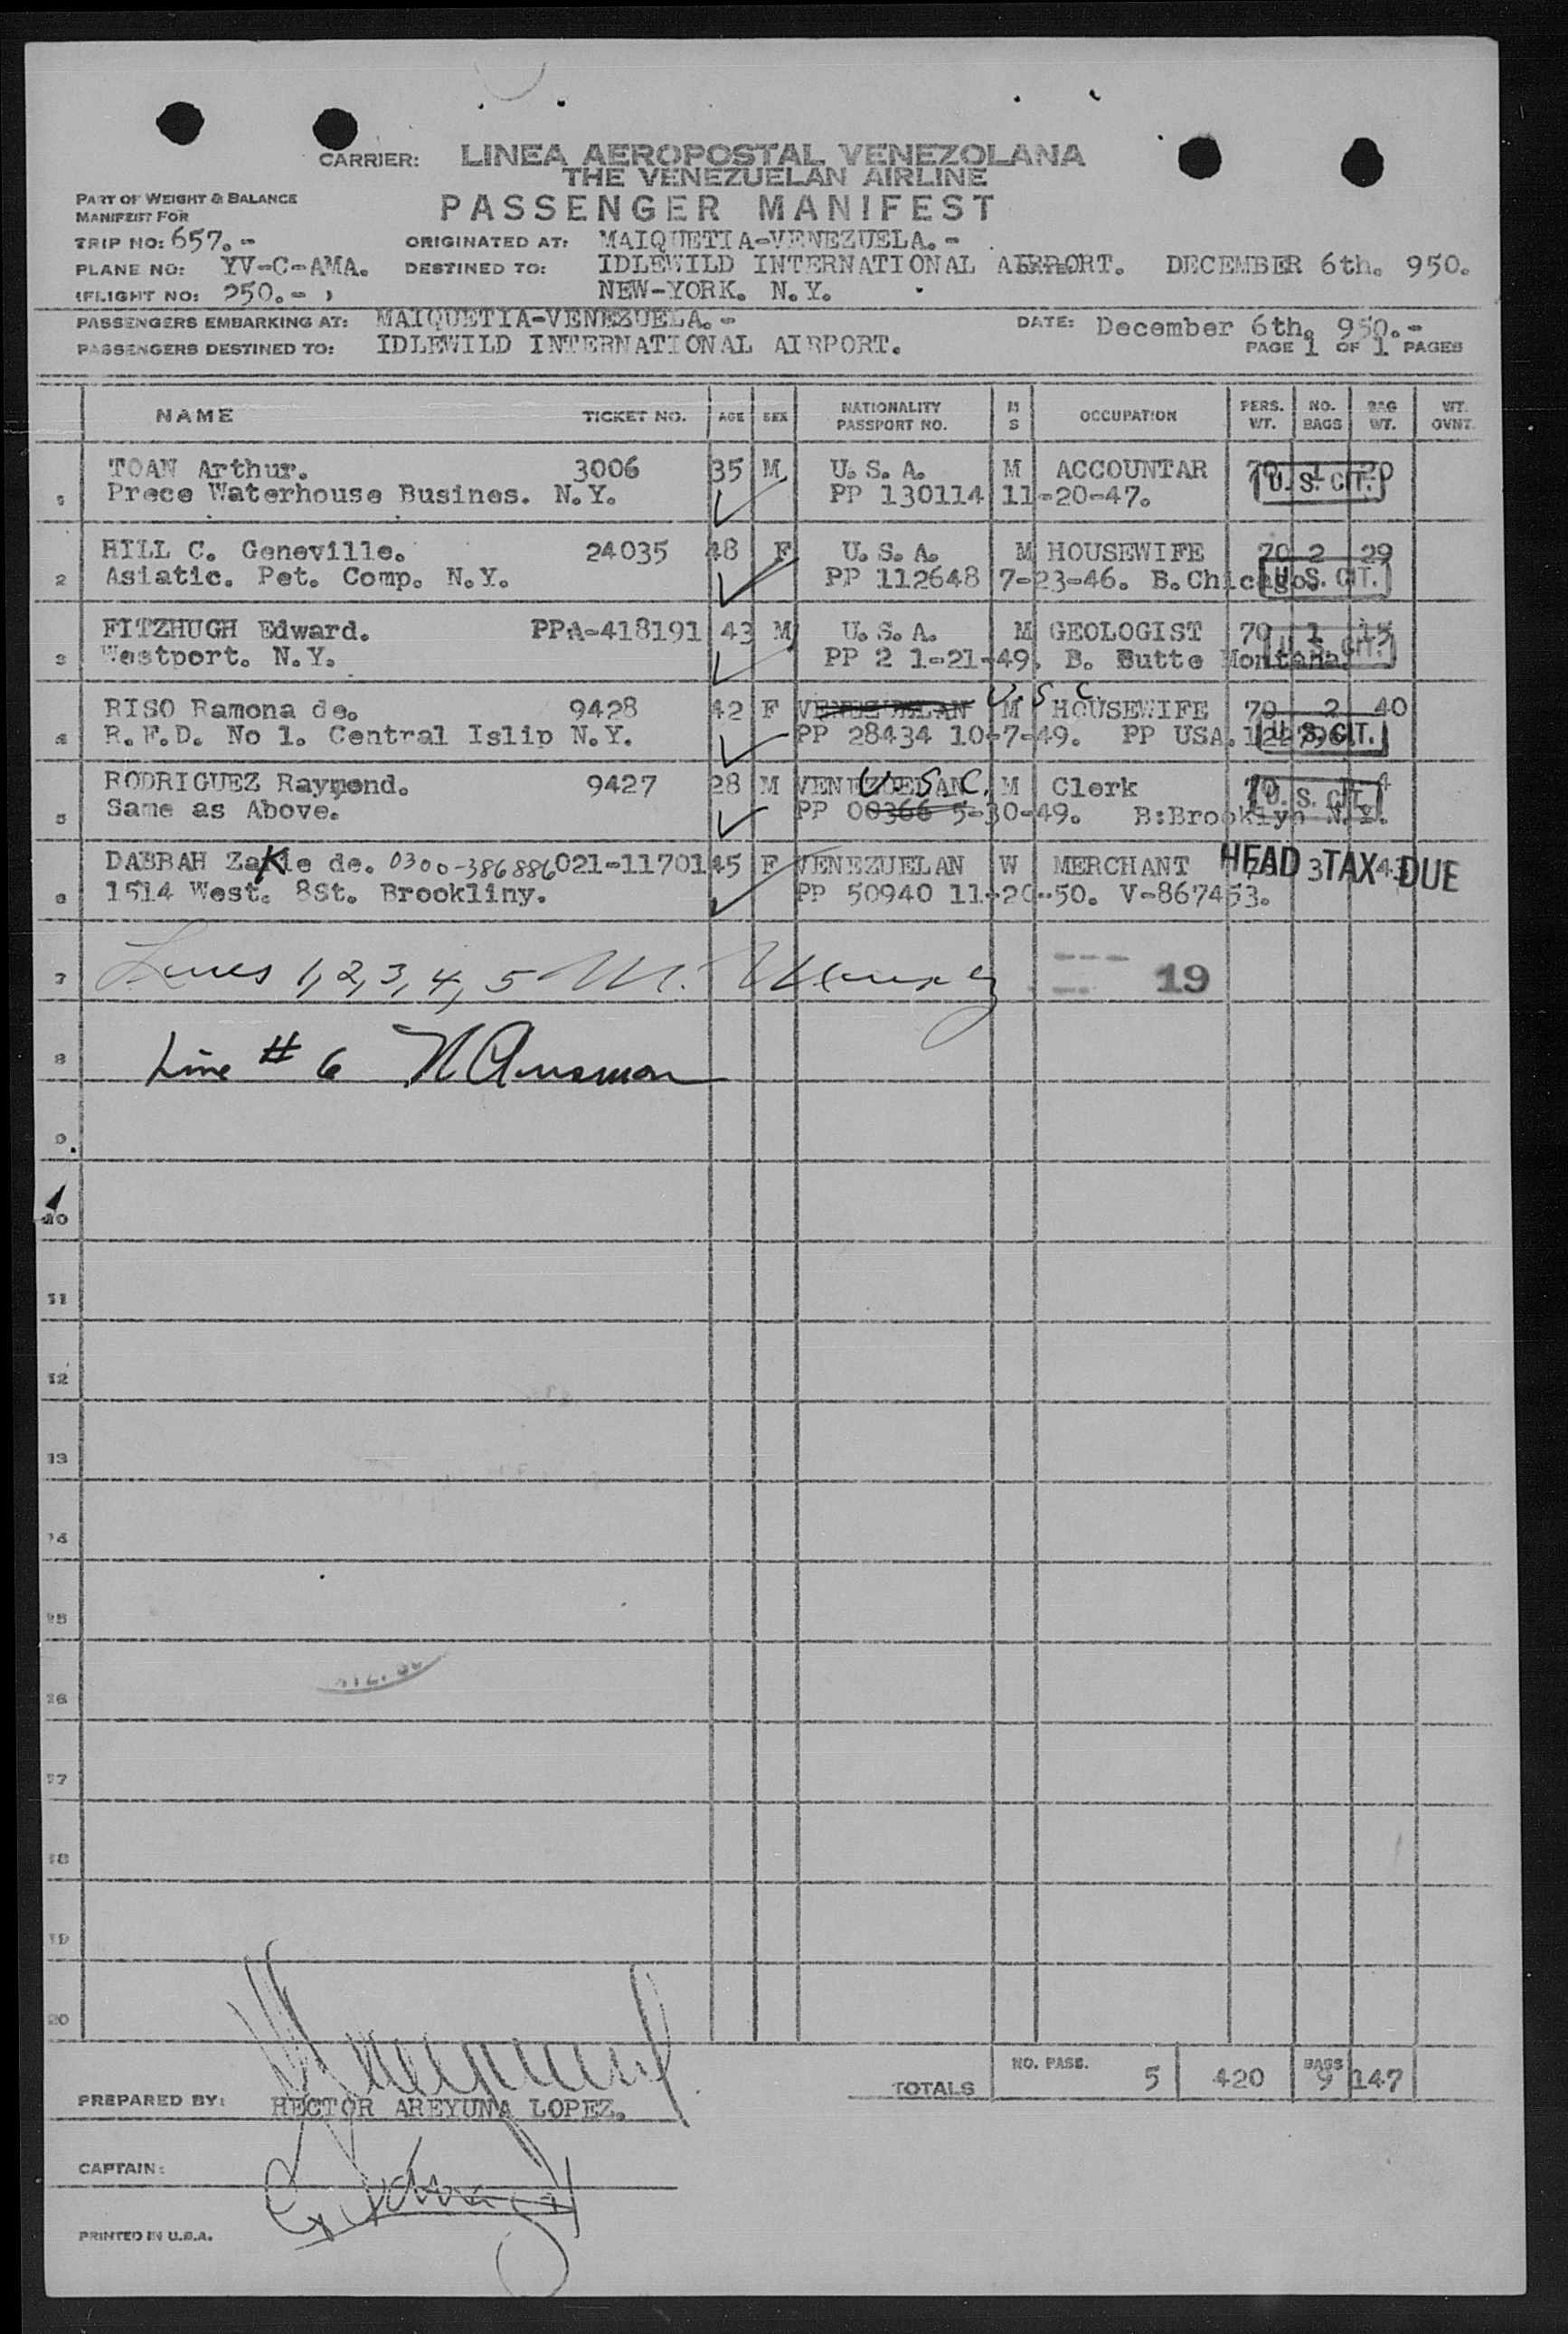 CARRIER: LINEA AEROPOSTAL VENEZOLANA
THE VENEZUELAN AIRLINE
PASSENGER MANIFEST
PART OF WEIGHT & BALANCE
MANIFEST FOR
TRIP NO: 657.-
ORIGINATED AT: MAIQUETIA-VENEZUELA.-
PLANE NO: YV-C-AMA.
DESTINED TO: IDLEWILD INTERNATIONAL AIRPORT. DECEMBER 6th. 950.
(FLIGHT NO: 250.- )
NEW-YORK. N.Y.
PASSENGERS EMBARKING AT: MAIQUETIA-VENEZUELA.-
DATE: December 6th. 950.-
PASSENGERS DESTINED TO: IDLEWILD INTERNATIONAL AIRPORT.
PAGE 1 OF 1 PAGES
NAME TICKET NO. AGE SEX NATIONALITY PASSPORT NO. M S OCCUPATION PERS. WT. NO. BAGS BAG WT. WT. OVNT.
1 TOAN Arthur. 3006 35 M U.S.A. M ACCOUNTAR 70 1 20
Prece Waterhouse Busines. N.Y. PP 130114 11-20-47. U.S. CIT.
2 HILL C. Geneville. 24035 48 F U.S.A. M HOUSEWIFE 70 2 29
Asiatic. Pet. Comp. N.Y. PP 112648 7-23-46. B.Chicago. U.S. CIT.
3 FITZHUGH Edward. PPA-418191 43 M U.S.A. M GEOLOGIST 70 1 15
Westport. N.Y. PP 2 1-21-49. B. Butte Montana. U.S. CIT.
4 RISO Ramona de. 9428 42 F VENEZUELAN U.S.C. M HOUSEWIFE 70 2 40
R.F.D. No 1. Central Islip N.Y. PP 28434 10-7-49. PP USA. U.S. CIT.
5 RODRIGUEZ Raymond. 9427 28 M VENEZUELAN U.S.C. M Clerk 70 4
Same as Above. PP 00366 5-30-49. B:Brooklyn N.Y. U.S. CIT.
6 DABBAH Zakie de. 0300-386886 021-11701 45 F VENEZUELAN W MERCHANT 3 HEAD TAX DUE
1514 West. 8St. Brookliny. PP 50940 11-20-50. V-867453.
7 Lines 1,2,3,4,5 M. 19
8 Line # 6
9
10
11
12
13
14
15
16
17
18
19
20
TOTALS NO. PASS. 5 420 BAGS 9 147
PREPARED BY: HECTOR AREYUNA LOPEZ.
CAPTAIN:
PRINTED IN U.S.A.